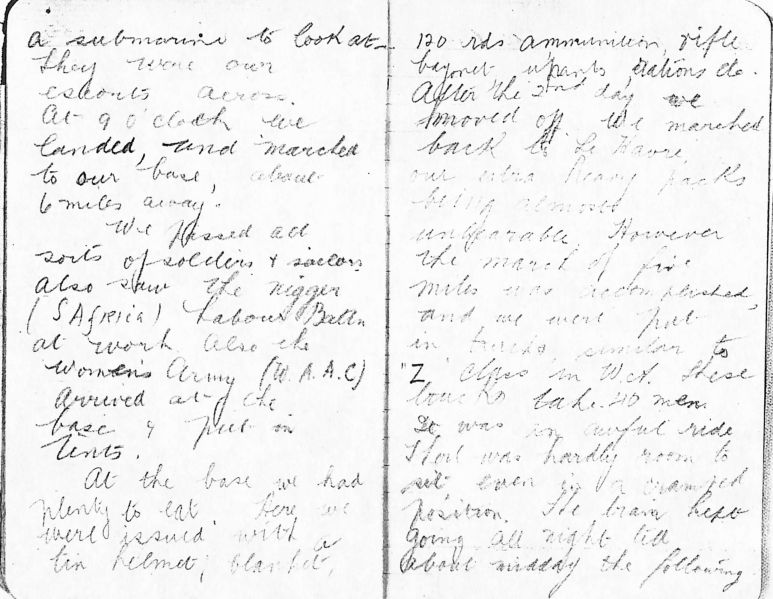 a submarine to look at
They were our
escorts across.
At 9 o'clock we
landed, and marched
to our base, about
6 miles away.
We passed all
sorts of soldiers & sailors
also saw the nigger
(S Africa) Labour Battn
at work. Also the
Women's Army (W.A.A.C)
Arrived at the
base & put in
tents.
At the base we had
plenty to eat. Here we
were issued with a
tin helmet, blanket,
120 rds ammunition, rifle
bayonet, rations etc.
After the 2nd day we
moved off. We marched
back to Le Havre,
our extra heavy packs
being almost
unbearable. However
the march of five
miles was accomplished,
and we were put
in trucks, similar to
"Z" class in W.A. These
trucks take 40 men.
It was an awful ride
There was hardly room to
sit even in a cramped
position. The train kept
going all night till
about midday the following